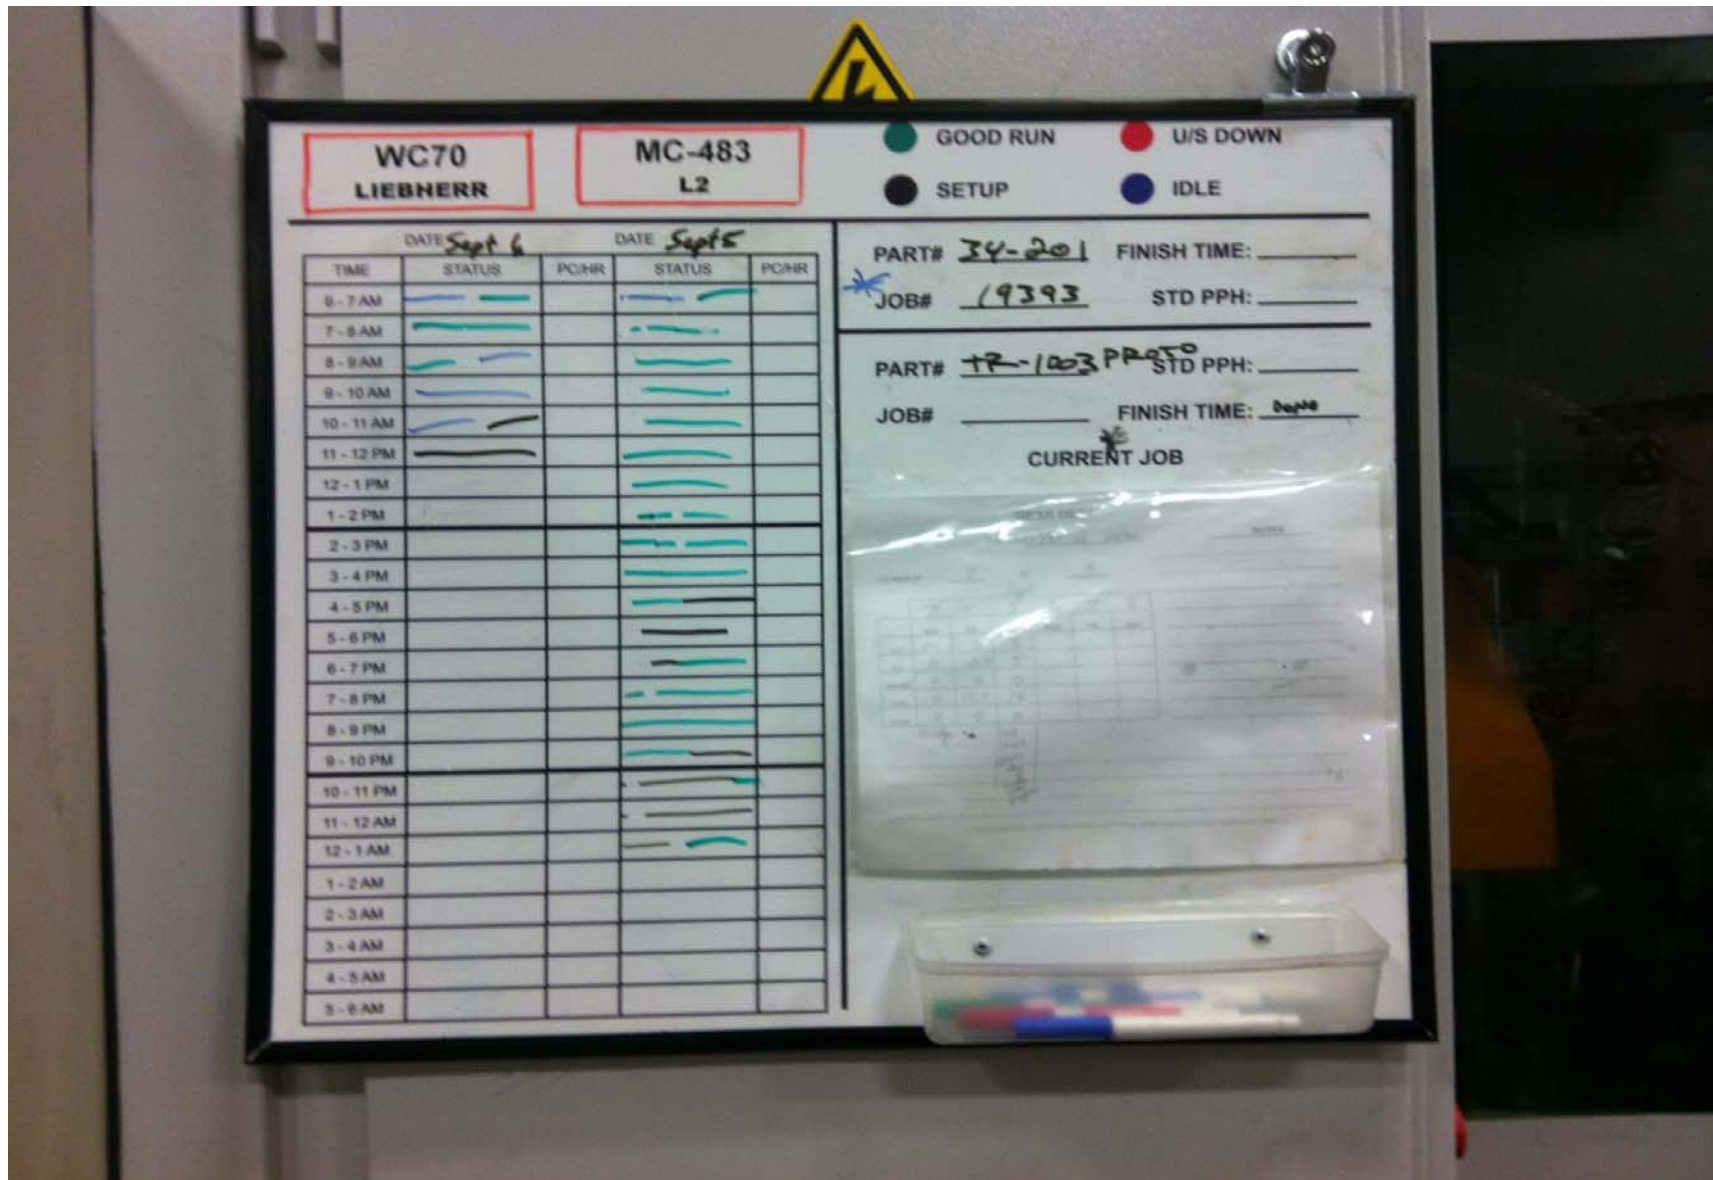 WC70
LIEBHERR
MC-483
L2
GOOD RUN
U/S DOWN
SETUP
IDLE
DATE Sept 6
DATE Sept 5
TIME STATUS PC/HR STATUS PC/HR
6 - 7 AM
7 - 8 AM
8 - 9 AM
9 - 10 AM
10 - 11 AM
11 - 12 PM
12 - 1 PM
1 - 2 PM
2 - 3 PM
3 - 4 PM
4 - 5 PM
5 - 6 PM
6 - 7 PM
7 - 8 PM
8 - 9 PM
9 - 10 PM
10 - 11 PM
11 - 12 AM
12 - 1 AM
1 - 2 AM
2 - 3 AM
3 - 4 AM
4 - 5 AM
5 - 6 AM
PART# 34-201 FINISH TIME:
JOB# 19393 STD PPH:
PART# TR-1003 PROTO STD PPH:
JOB# FINISH TIME:
CURRENT JOB